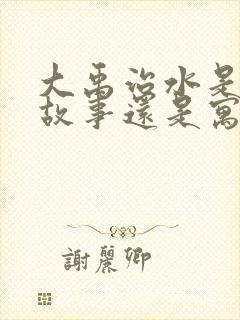 大禹治水是
故事還是寓
謝麗卿